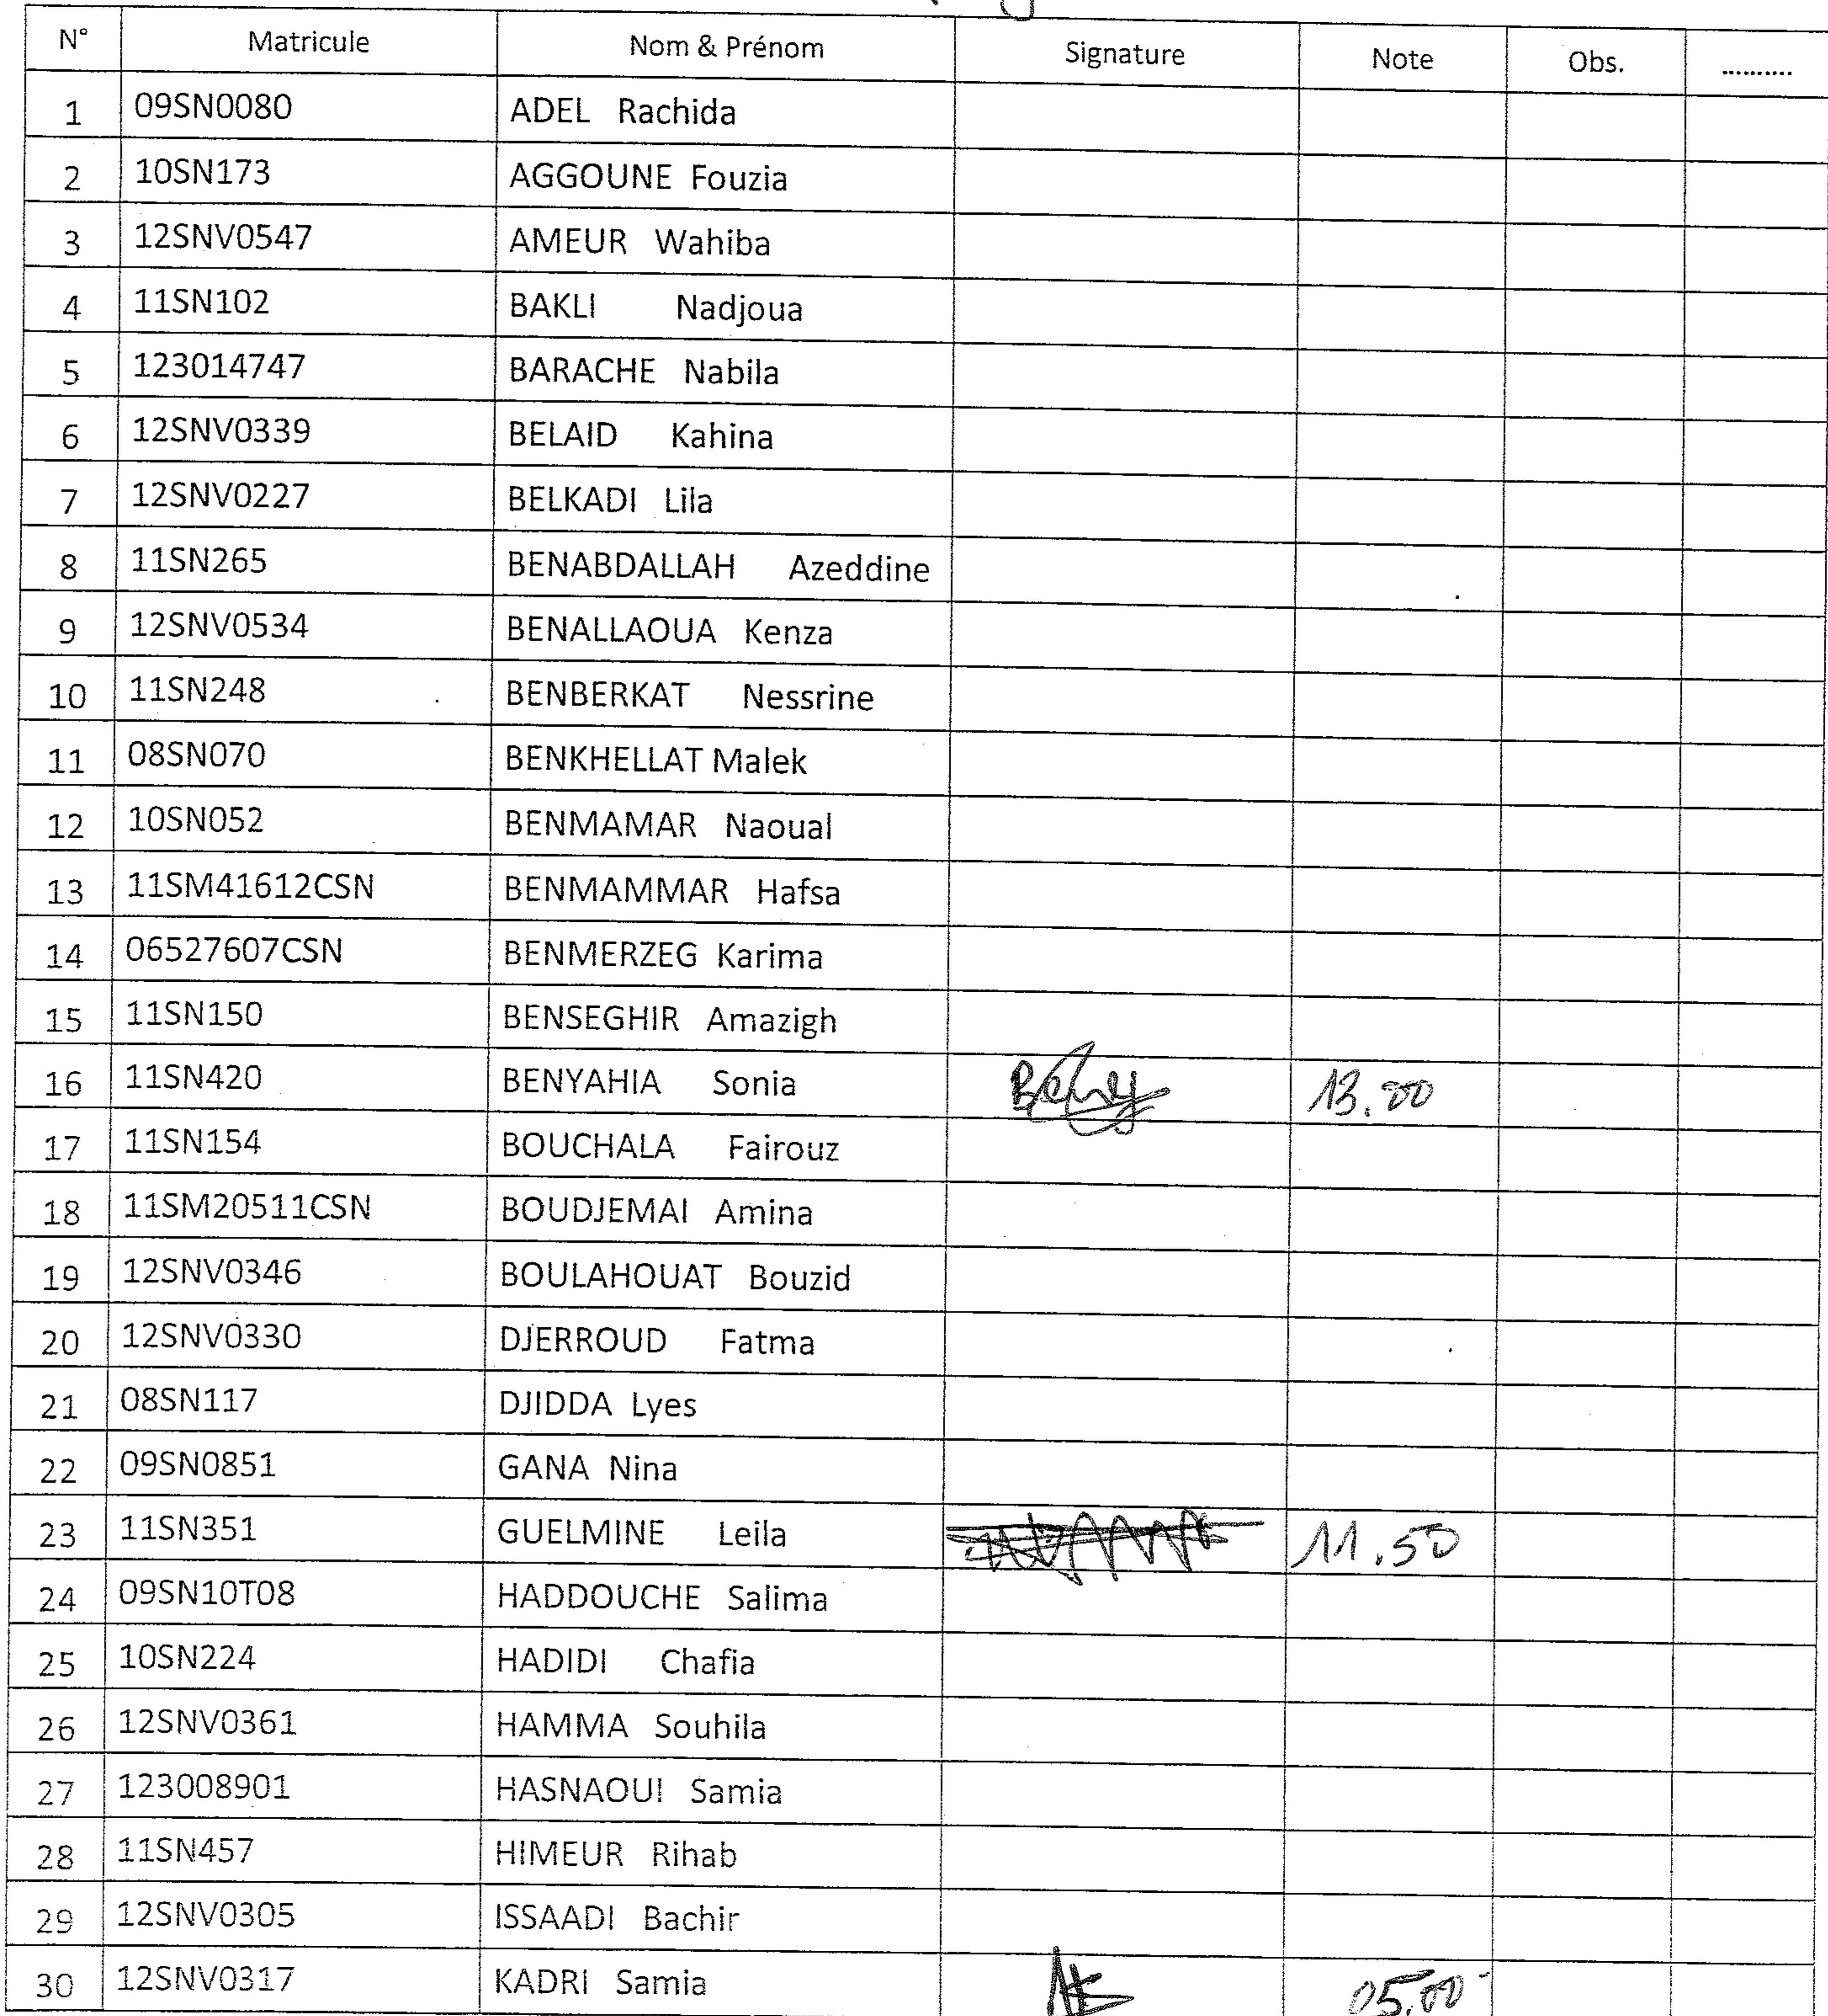 N° Matricule Nom & Prénom Signature Note Obs. ..........
1 09SN0080 ADEL Rachida
2 10SN173 AGGOUNE Fouzia
3 12SNV0547 AMEUR Wahiba
4 11SN102 BAKLI Nadjoua
5 123014747 BARACHE Nabila
6 12SNV0339 BELAID Kahina
7 12SNV0227 BELKADI Lila
8 11SN265 BENABDALLAH Azeddine
9 12SNV0534 BENALLAOUA Kenza
10 11SN248 BENBERKAT Nessrine
11 08SN070 BENKHELLAT Malek
12 10SN052 BENMAMAR Naoual
13 11SM41612CSN BENMAMMAR Hafsa
14 06527607CSN BENMERZEG Karima
15 11SN150 BENSEGHIR Amazigh
16 11SN420 BENYAHIA Sonia 13.00
17 11SN154 BOUCHALA Fairouz
18 11SM20511CSN BOUDJEMAI Amina
19 12SNV0346 BOULAHOUAT Bouzid
20 12SNV0330 DJERROUD Fatma
21 08SN117 DJIDDA Lyes
22 09SN0851 GANA Nina
23 11SN351 GUELMINE Leila 11.50
24 09SN10T08 HADDOUCHE Salima
25 10SN224 HADIDI Chafia
26 12SNV0361 HAMMA Souhila
27 123008901 HASNAOUI Samia
28 11SN457 HIMEUR Rihab
29 12SNV0305 ISSAADI Bachir
30 12SNV0317 KADRI Samia 05.00